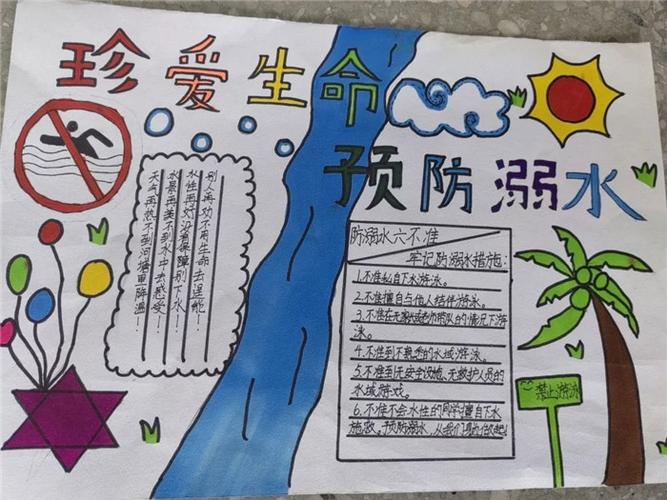 珍爱生命
预防溺水
别人再劝不用生命去逞能!
水性再好没有保障别下水!
水景再美不到水中去感受!
天气再热不到河塘里降温!
防溺水六不准
牢记防溺水措施:
1.不准私自下水游泳。
2.不准擅自与他人结伴游泳。
3.不准在无家长或老师带队的情况下游
泳。
4.不准到不熟悉的水域游泳。
5.不准到无安全设施、无救护人员的
水域游戏。
6.不准不会水性的同学擅自下水
施救。预防溺水,从我们现在做起!
禁止游泳